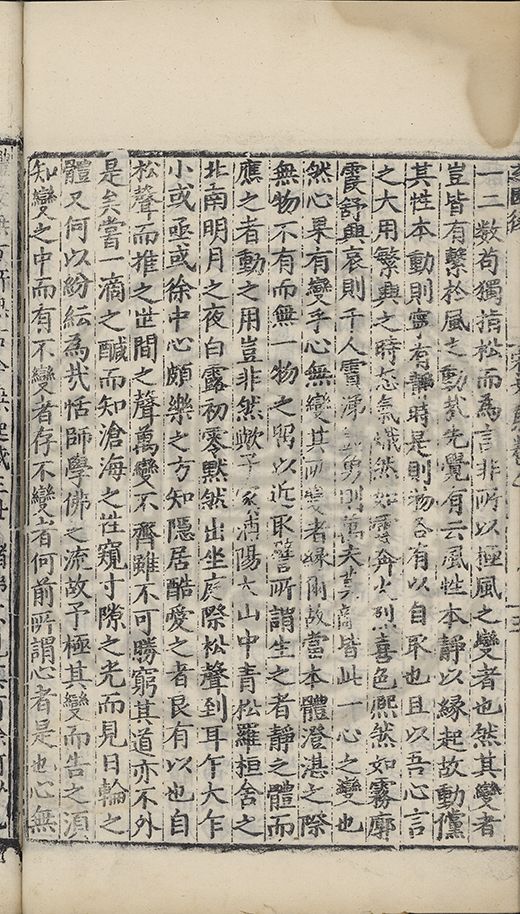 一二數苟獨指松而為言非所以極風之變者也然其變者
豈皆有繫於風之動哉先覺有云風性本靜以緣起故動儻
其性本動則寧有靜時是則物各有以自取也且以吾心言
之大用繁興之時怒氣熾然如雷奔火烈喜色熈然如霧廓
霞舒興哀則千人霣涕 勇則萬夫 皆此一心之變也
然心果有變乎心無變其所變者緣爾故當本體澄湛之際
無物不有而無一物之 以近取譬所謂生之者靜之體而
應之者動之用豈非然歟予家浦陽大山中青松羅桓舍之
北南明月之夜白露初零默然出坐庭際松聲到耳乍大乍
小或亟或徐中心頗樂之方知隱居酷愛之者良有以也自
松聲而推之世間之聲萬變不齊雖不可勝窮其道亦不外
是矣嘗一滴之醎而知滄海之性窺寸隙之光而見日輪之
體又何以紛紜為哉恬師學佛之流故予極其變而告之湏
知變之中而有不變者存不變者何前所謂心者是也心無